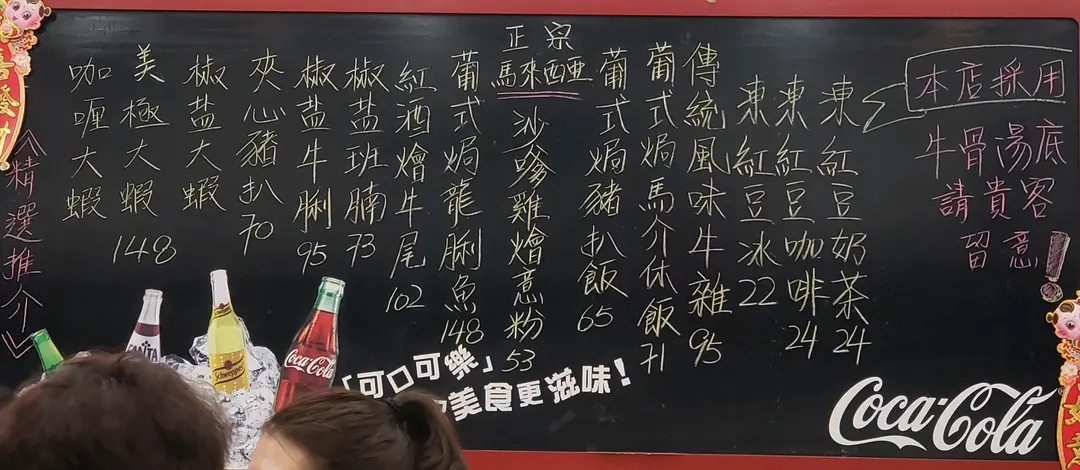 本店採用
牛骨湯底
請貴客
留意！
凍紅豆奶茶24
凍紅豆咖啡24
凍紅豆冰22
傳統風味牛雜95
葡式焗馬介休飯71
葡式焗豬扒飯65
正宗
馬來西亞
沙嗲雞燴意粉53
葡式焗龍脷魚148
紅酒燴牛尾102
椒盐班腩73
椒盐牛脷95
夾心豬扒70
椒盐大蝦
美極大蝦
咖喱大蝦
148
精選推介
「可口可樂」
美食更滋味！
Coca-Cola
FANTA
Schweppes
Coca-Cola